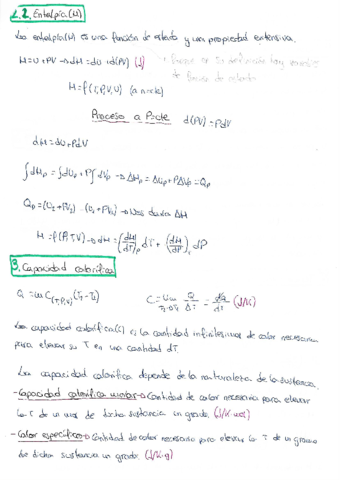 2.2 Entalpía (H)
La entalpía (H) es una función de estado y una propiedad extensiva.
H = U + PV → dH = dU + d(PV) (J)
H = f(T,P,V,U) (n = cte)
Proceso a P=cte d(PV) = PdV
dH = dU + PdV
∫dHp = ∫dUp + P∫dVp → ΔHp = ΔUp + PΔVp = Qp
Qp = (U2 + PV2) - (U1 + PV1) → Nos da una ΔH
H = f(P,T,V) → dH = (dH/dT)p dT + (dH/dP)T dP
3. Capacidad calorífica
Q = m C(T,P,V) (T2 - T1) C = lim T2→T1 Q/ΔT = dQ/dT (J/K)
La capacidad calorífica (C) es la cantidad infinitesimal de calor necesaria
para elevar su T en una cantidad dT.
La capacidad calorífica depende de la naturaleza de la sustancia.
- Capacidad calorífica molar → Cantidad de calor necesario para elevar
la T de un mol de dicha sustancia un grado. (J/K·mol)
- Calor específico → Cantidad de calor necesario para elevar la T de un gramo
de dicha sustancia un grado (J/K·g)